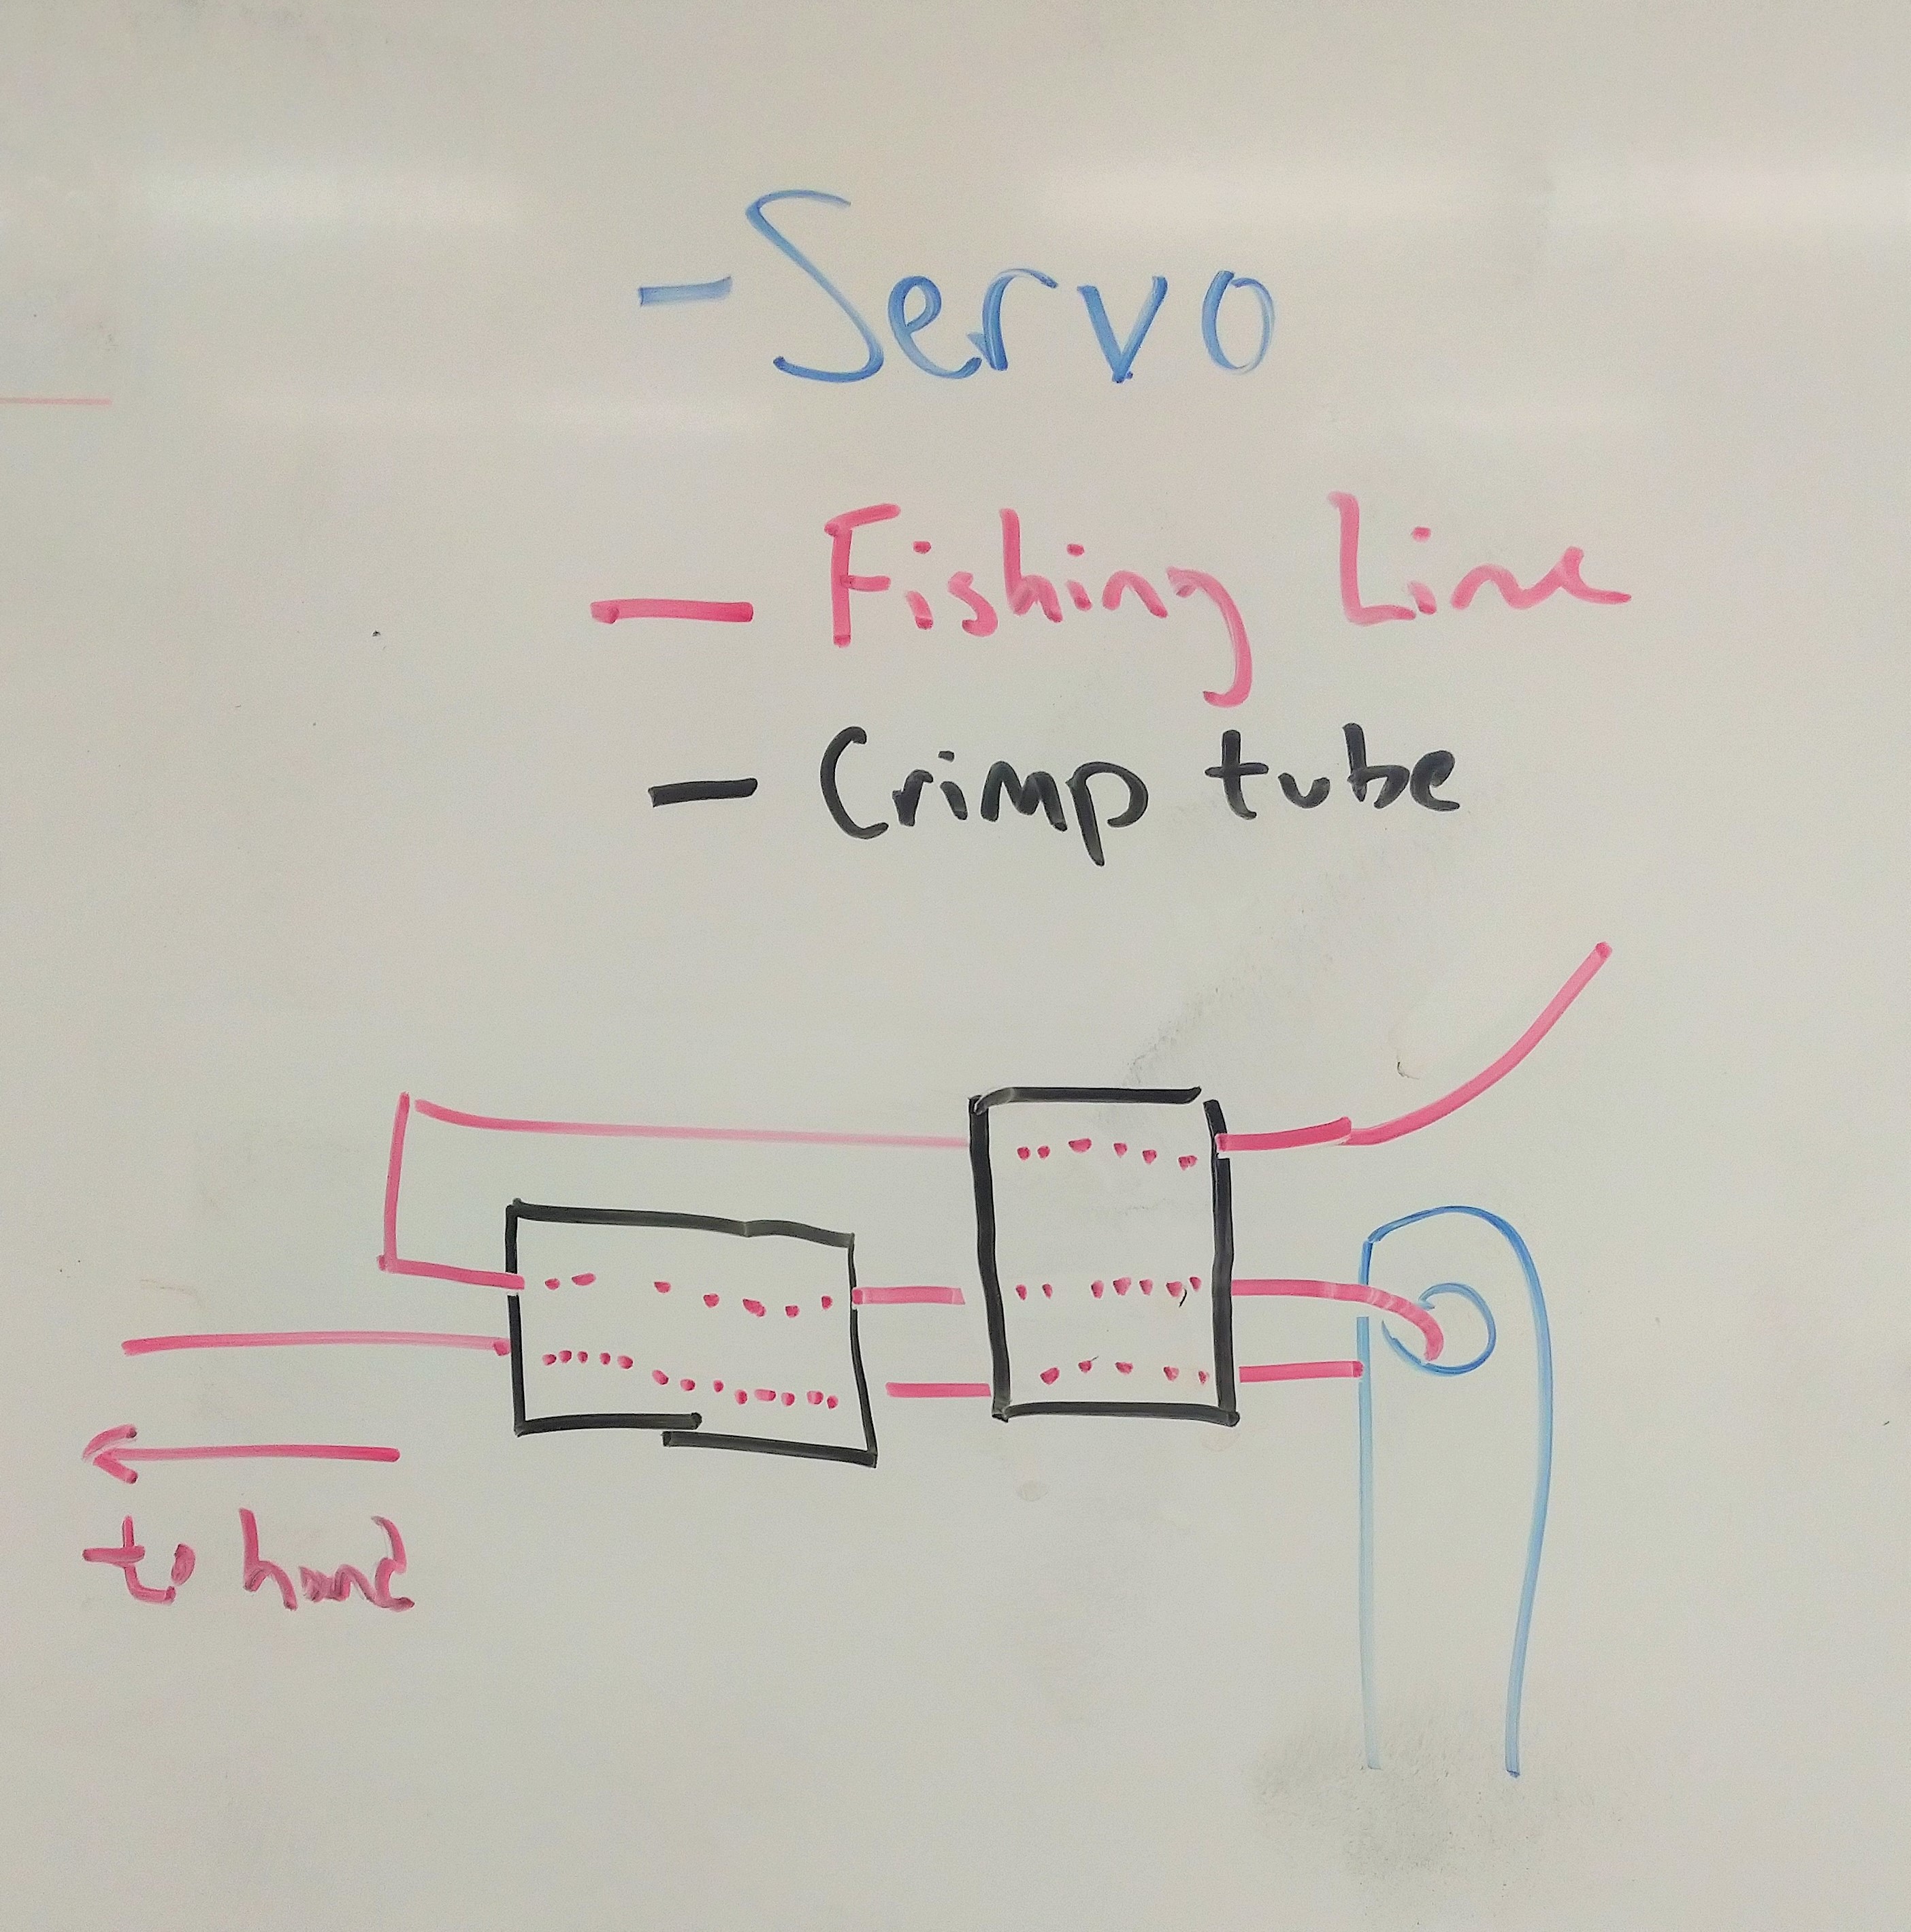 - Servo
- Fishing Line
- Crimp tube
to hand